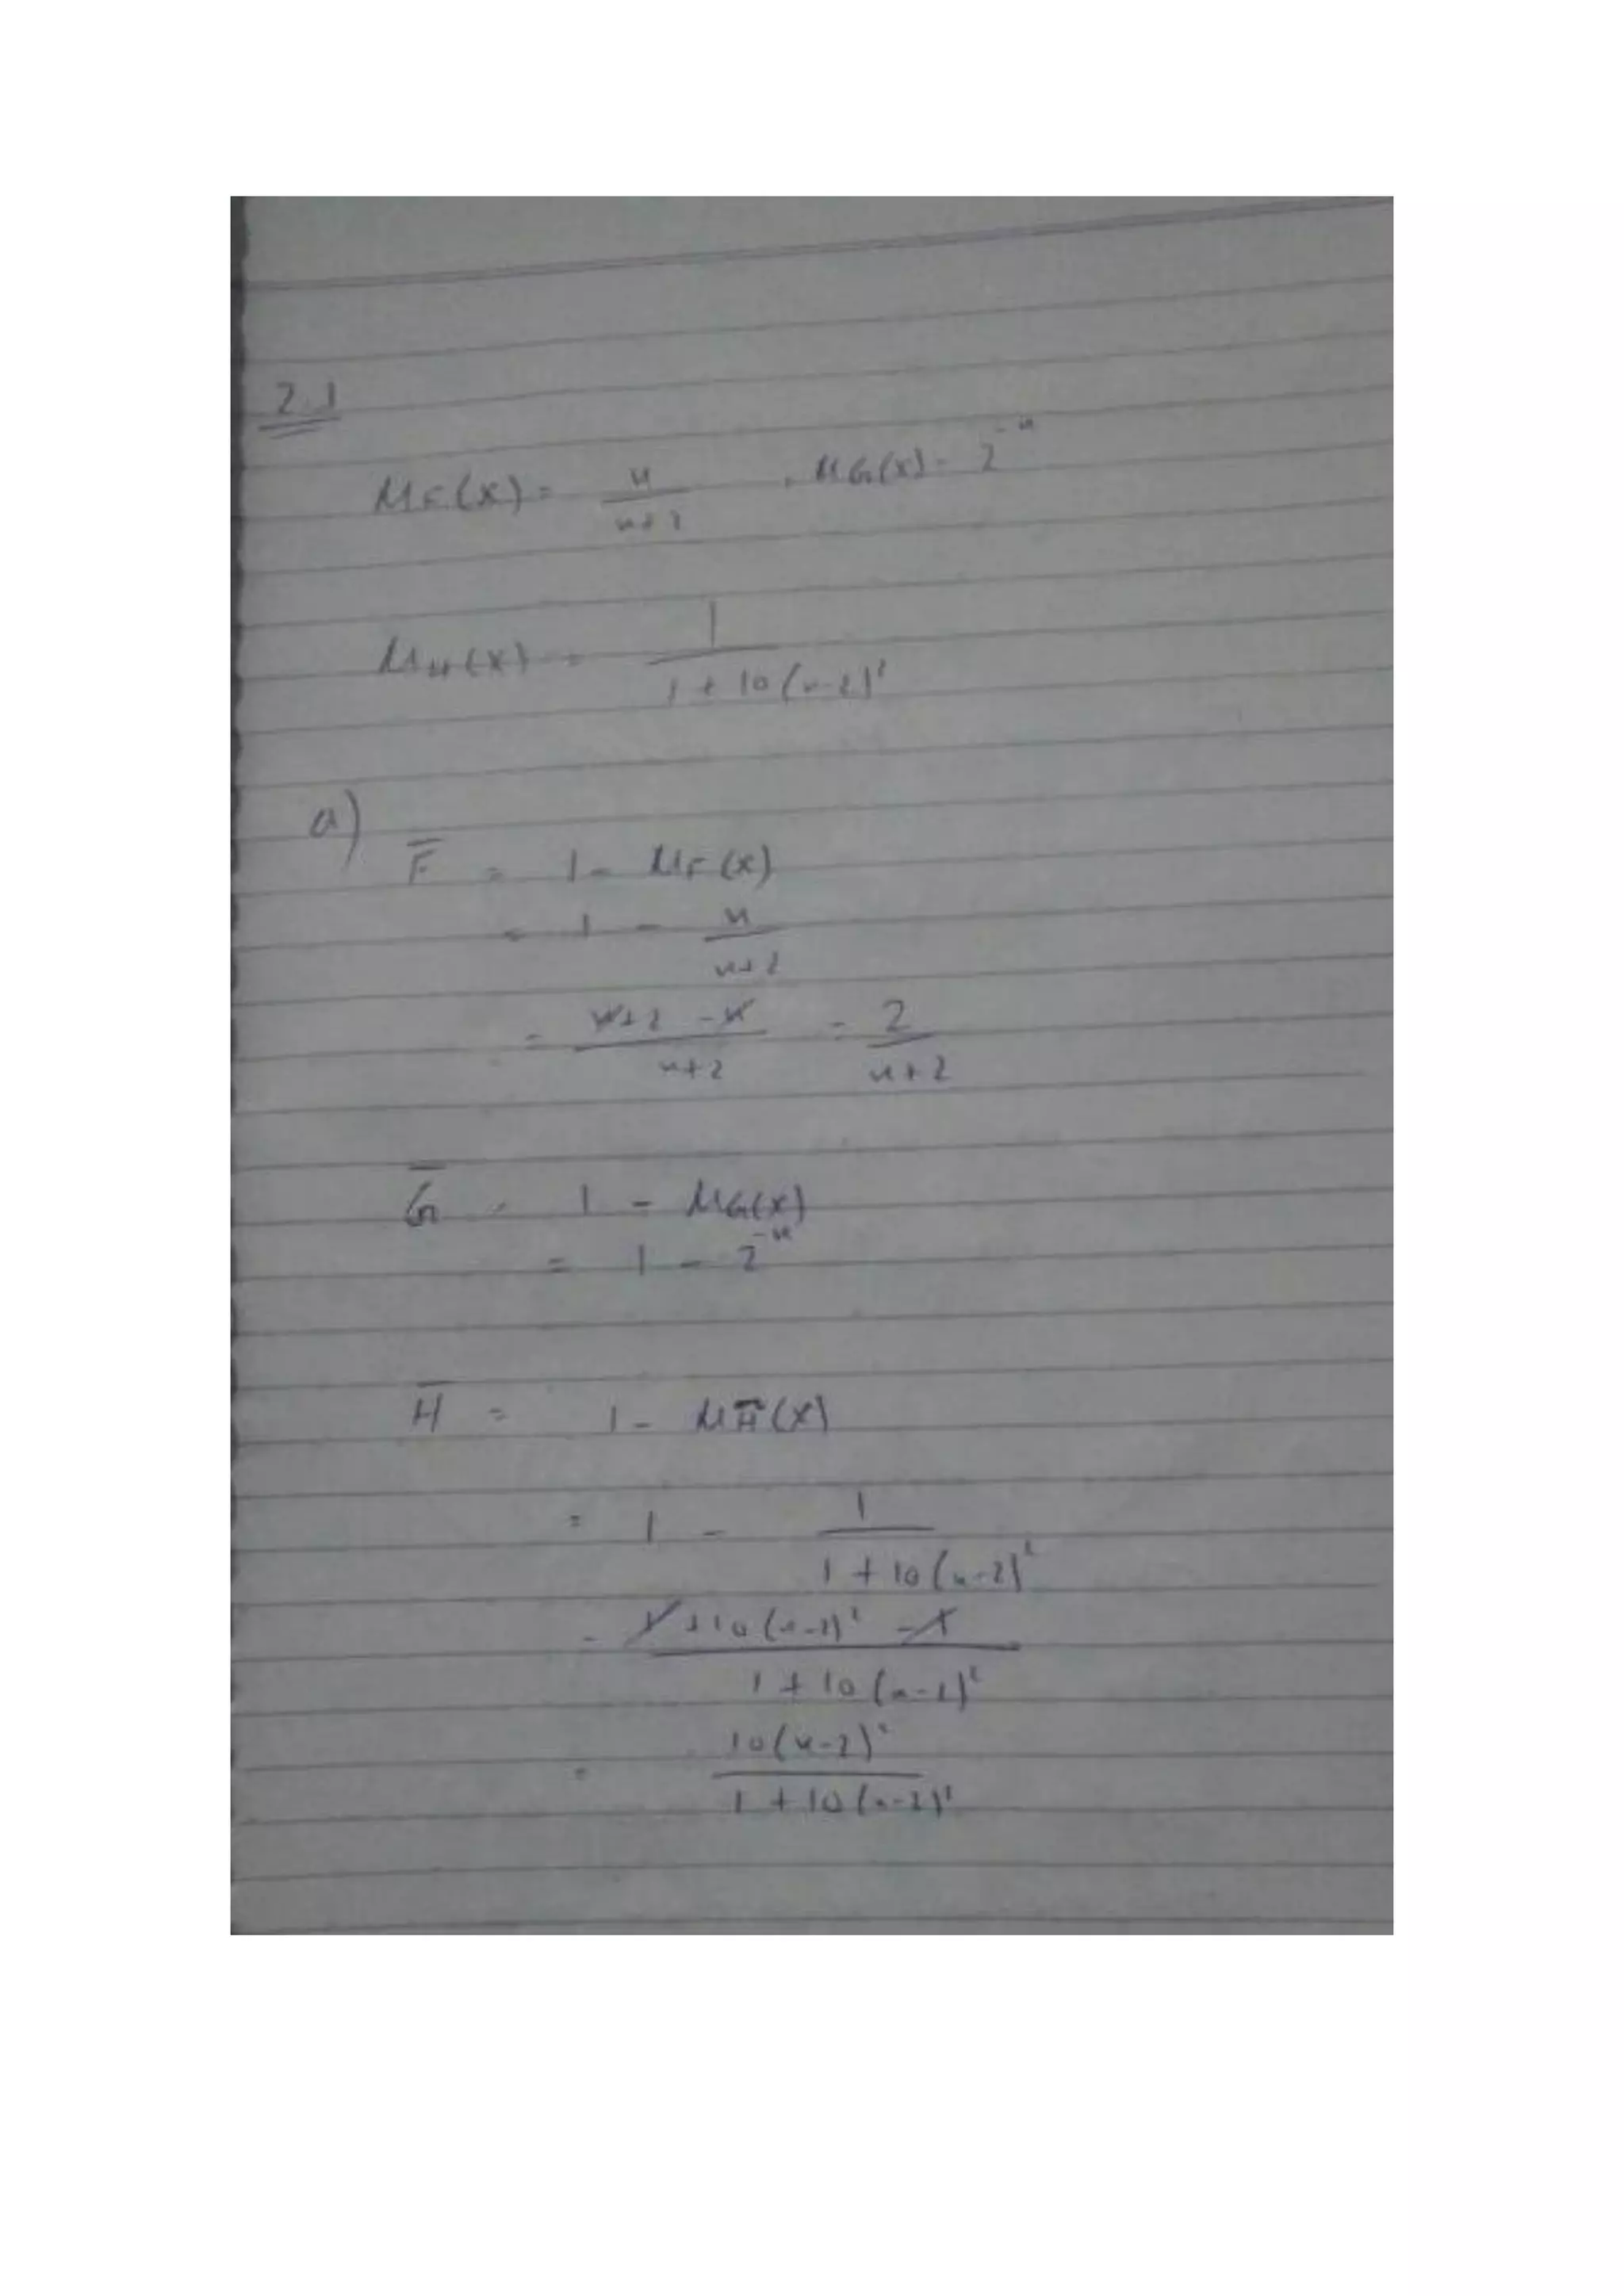 2.1
μF(x) = x/(x+2) , μG(x) = 2^-x
μH(x) = 1/(1 + 10(x-2)²)
a)
F̅ = 1 - μF(x)
= 1 - x/(x+2)
= (x+2 - x)/(x+2) = 2/(x+2)
G̅ = 1 - μG(x)
= 1 - 2^-x
H̅ = 1 - μH̅(x)
= 1 - 1/(1 + 10(x-2)²)
= (1 + 10(x-2)² - 1)/(1 + 10(x-2)²)
= 10(x-2)²/(1 + 10(x-2)²)